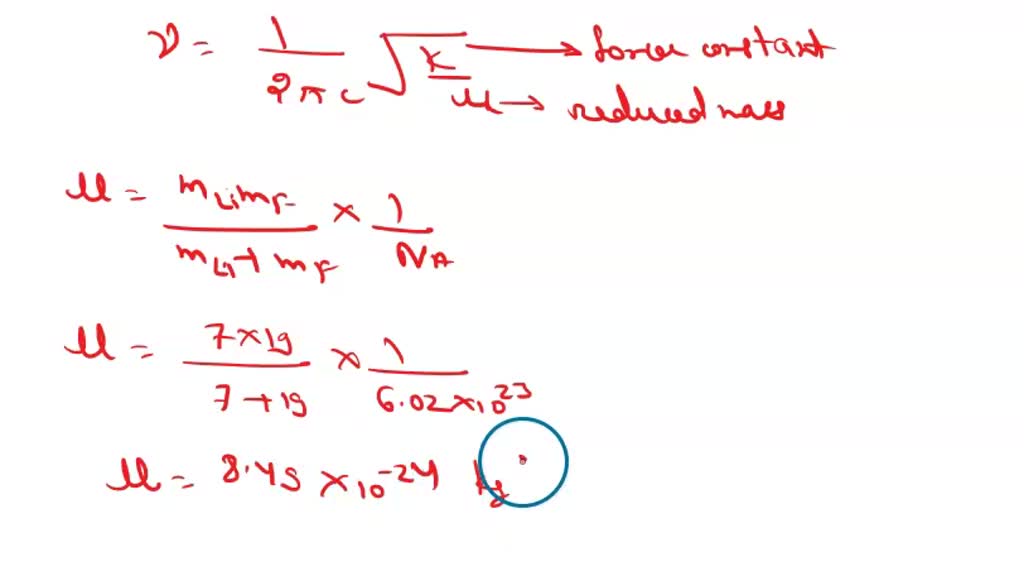 ν = 1 / 2πc √ k / μ → force constant
→ reduced mass
μ = mLi mF / mLi + mF × 1 / NA
μ = 7×19 / 7+19 × 1 / 6.02×10^23
μ = 8.49 ×10^-24 kg